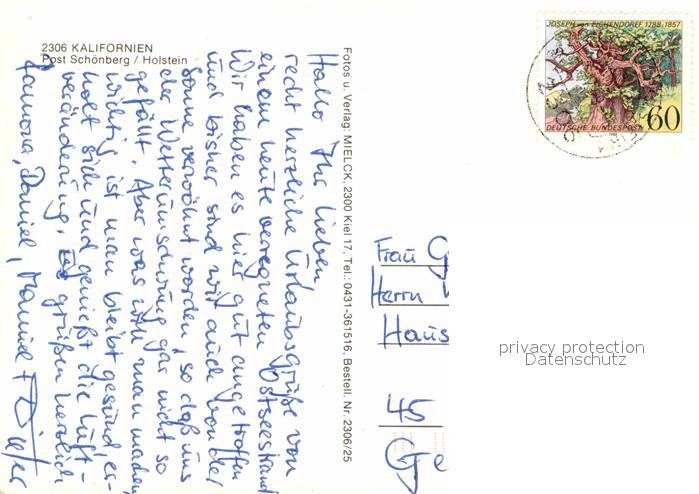 2306 KALIFORNIEN
Post Schönberg / Holstein
Hallo Ihr Lieben,
recht herzliche Urlaubsgrüße von
einem heute verregneten Ostseestrand
Wir haben es hier gut angetroffen
und bisher sind wir auch von der
Sonne verwöhnt worden, so daß uns
der Wetterumschwung gar nicht so
gefällt. Aber was will man machen,
wichtig ist man bleibt gesund, er-
holt sich und genießt die Luft-
veränderung. Es grüßen herzlich
Ramona, Daniel, Manuel + Dieter
Fotos u. Verlag: MIELCK, 2300 Kiel 17, Tel.: 0431-361516, Bestell. Nr. 2306/25
JOSEPH von EICHENDORFF 1788-1857
DEUTSCHE BUNDESPOST 60
Frau G
Herrn
Haus
45
Ge
privacy protection
Datenschutz